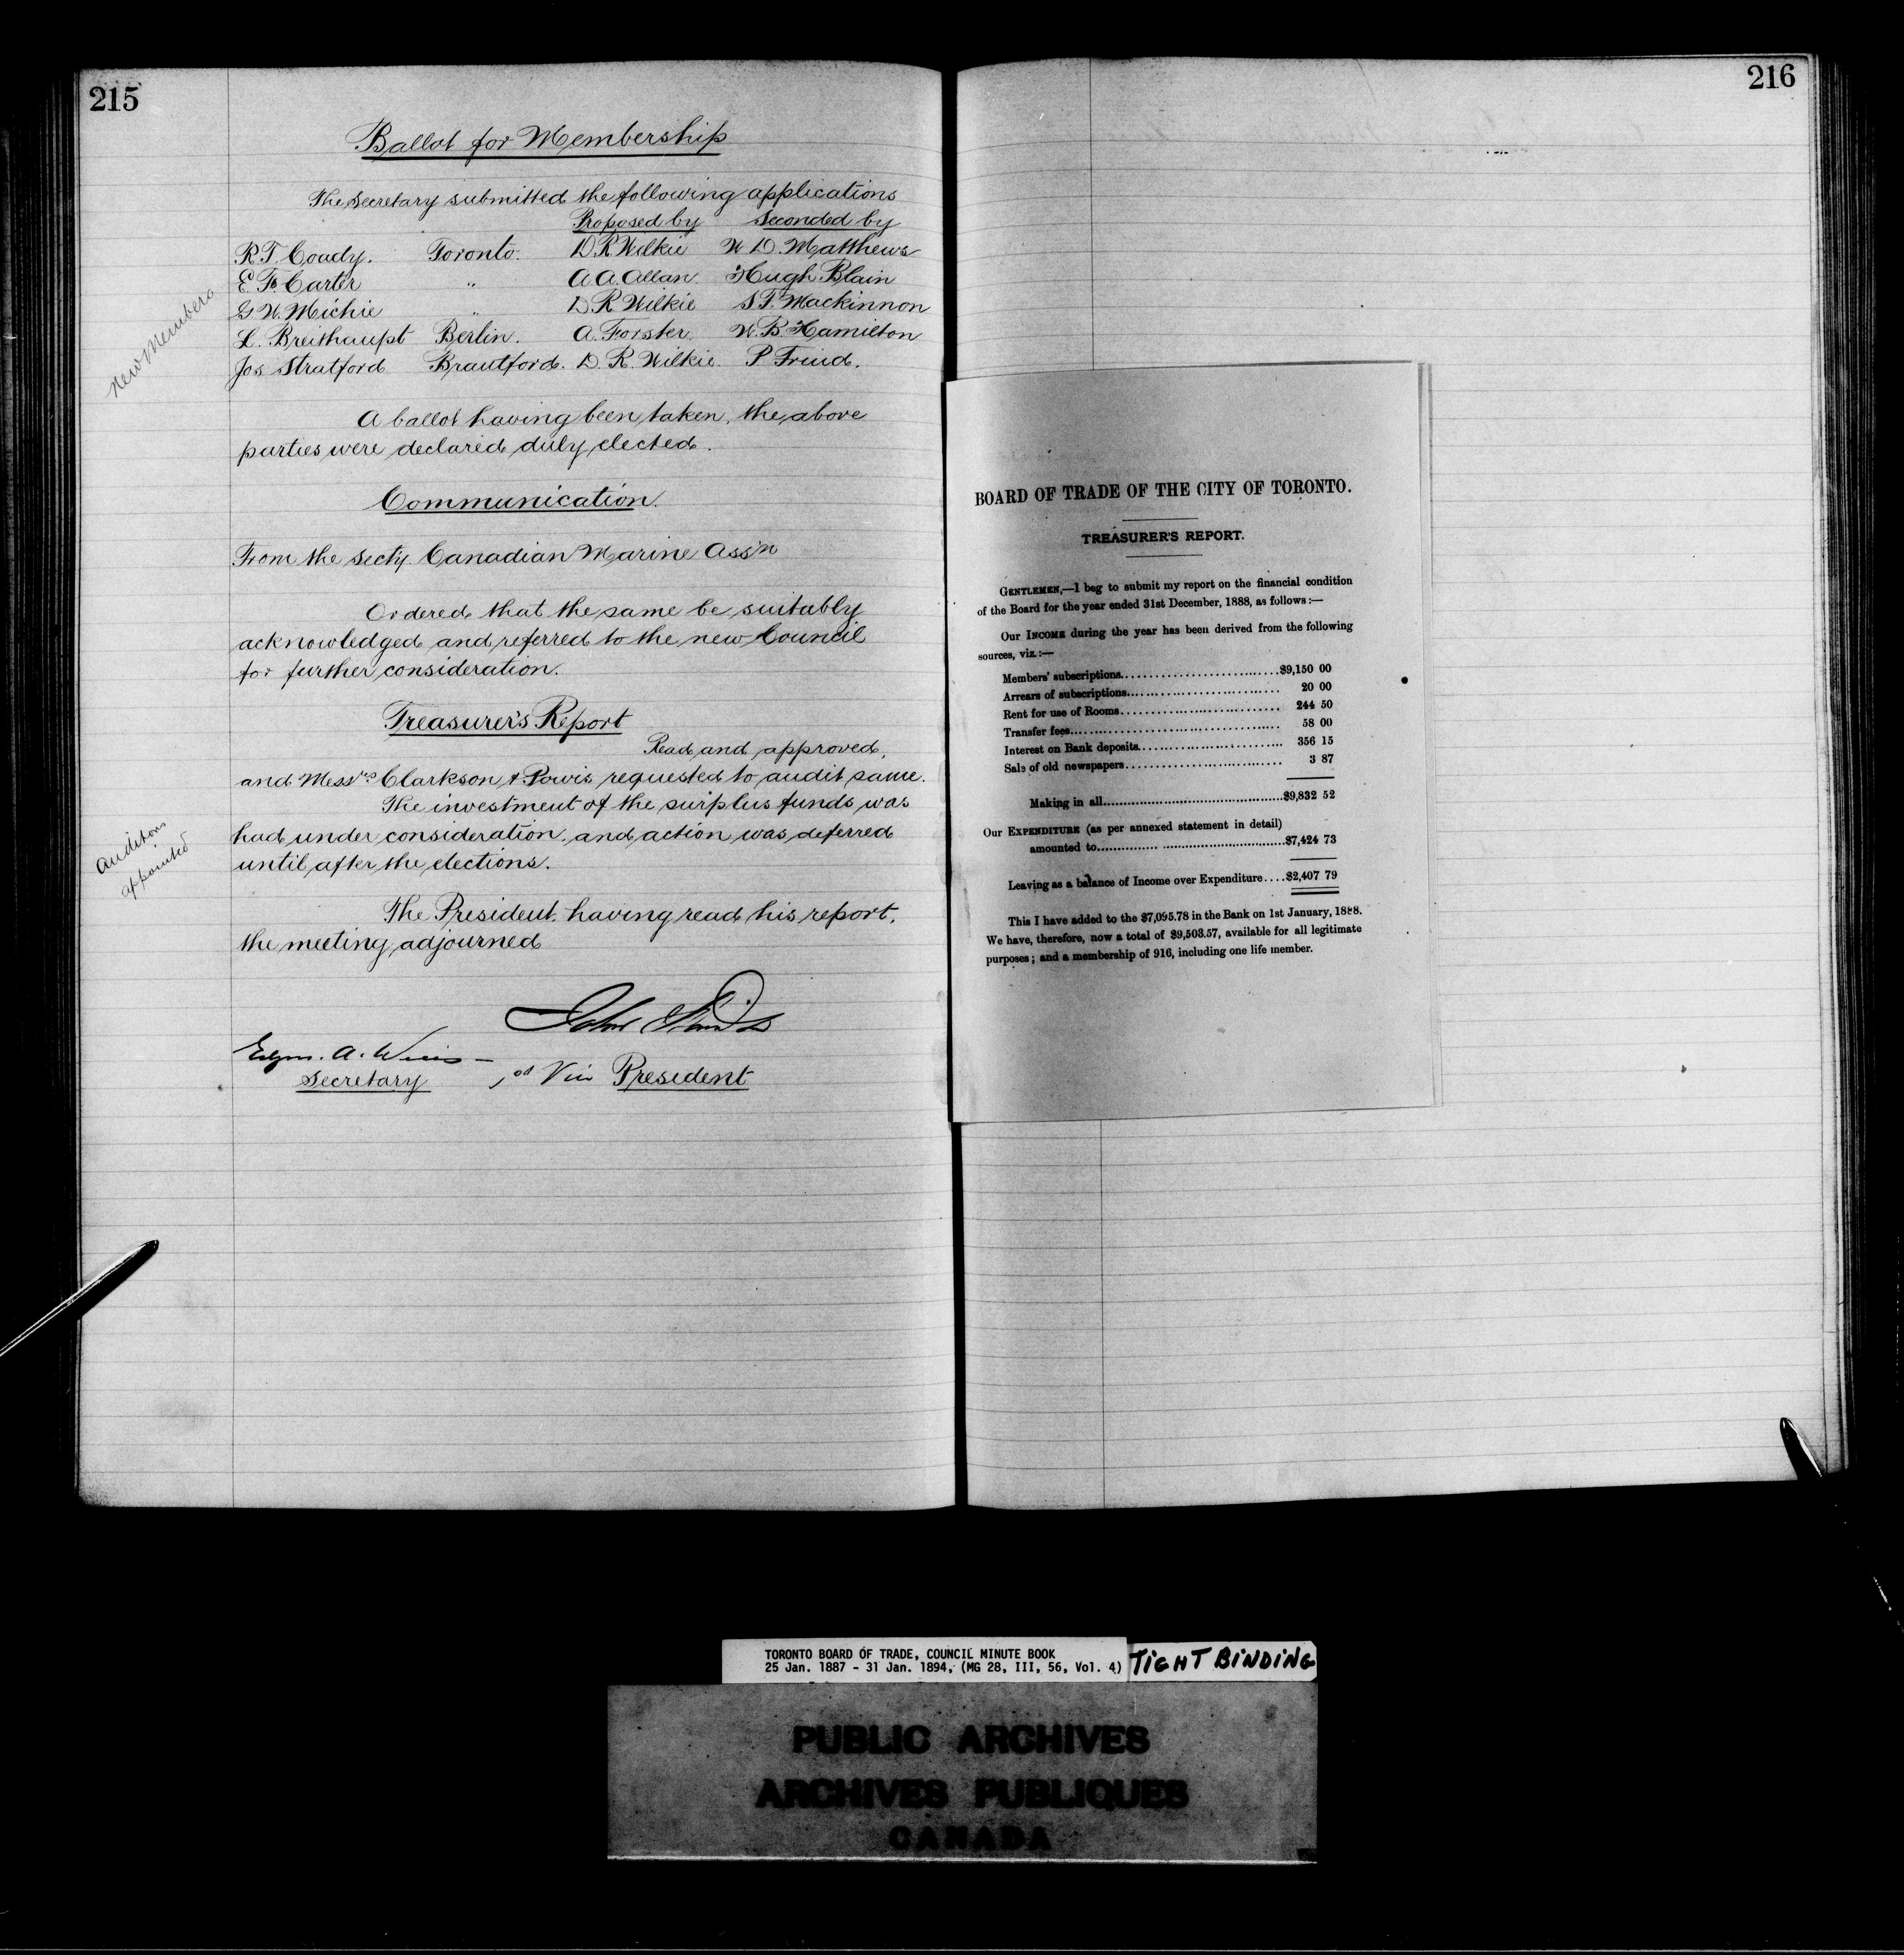 215
Ballot for Membership
The Secretary submitted the following applications
Proposed by Seconded by
R. T. Coady. Toronto. D. R. Wilkie W. D. Matthews
E. Carter " A. A. Allan Hugh Blain
G. W. Michie " D. R. Wilkie S. F. Mackinnon
L. Breithaupt Berlin. A. Forster. W. B. Hamilton
Jos Stratford Brantford. D. R. Wilkie. P Freud.
New Members
A ballot having been taken, the above
parties were declared duly elected.
Communication.
From the Secty. Canadian Marine Ass'n
Ordered that the same be suitably
acknowledged and referred to the new Council
for further consideration.
Treasurer's Report
Read and approved,
and Messrs Clarkson & Powis requested to audit same.
The investment of the surplus funds was
had under consideration, and action was deferred
until after the elections.
Auditors
appointed
The President, having read his report,
the meeting adjourned
John
Edgar. A. Wills
Secretary 1st Vice President
216
BOARD OF TRADE OF THE CITY OF TORONTO.
TREASURER'S REPORT.
GENTLEMEN,—I beg to submit my report on the financial condition
of the Board for the year ended 31st December, 1888, as follows:—
Our INCOME during the year has been derived from the following
sources, viz.:—
Members' subscriptions........................$9,150 00
Arrears of subscriptions........................ 20 00
Rent for use of Rooms........................ 244 50
Transfer fees........................ 58 00
Interest on Bank deposits........................ 356 15
Sale of old newspapers........................ 3 87
Making in all........................$9,832 52
Our EXPENDITURE (as per annexed statement in detail)
amounted to........................$7,424 73
Leaving as a balance of Income over Expenditure....$2,407 79
This I have added to the $7,095.78 in the Bank on 1st January, 1888.
We have, therefore, now a total of $9,503.57, available for all legitimate
purposes; and a membership of 916, including one life member.
TORONTO BOARD OF TRADE, COUNCIL MINUTE BOOK
25 Jan. 1887 - 31 Jan. 1894, (MG 28, III, 56, Vol. 4)
TIGHT BINDING
PUBLIC ARCHIVES
ARCHIVES PUBLIQUES
CANADA